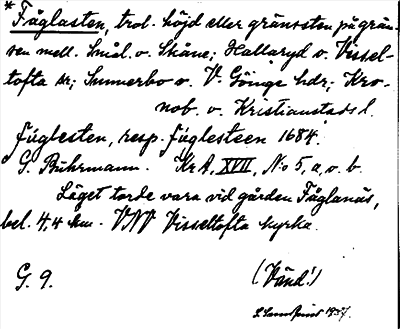 * Fåglasten, trol. höjd eller gränssten på grän-
sen mell. Smål. o. Skåne; Hallaryd o. Vissel-
tofta snr; Sunnerbo o. V. Göinge hdr; Kro-
nob. o. Kristianstads l.
fúglesten, resp. fúglesteen 1684.
G. Buhrmann. KrA XVII, No 5, a, o. b.
Läget torde vara vid gården Fåglanäs,
bel. 4,4 km. VNV Visseltofta kyrka.
G. 9.
(Vänd!)
1937.